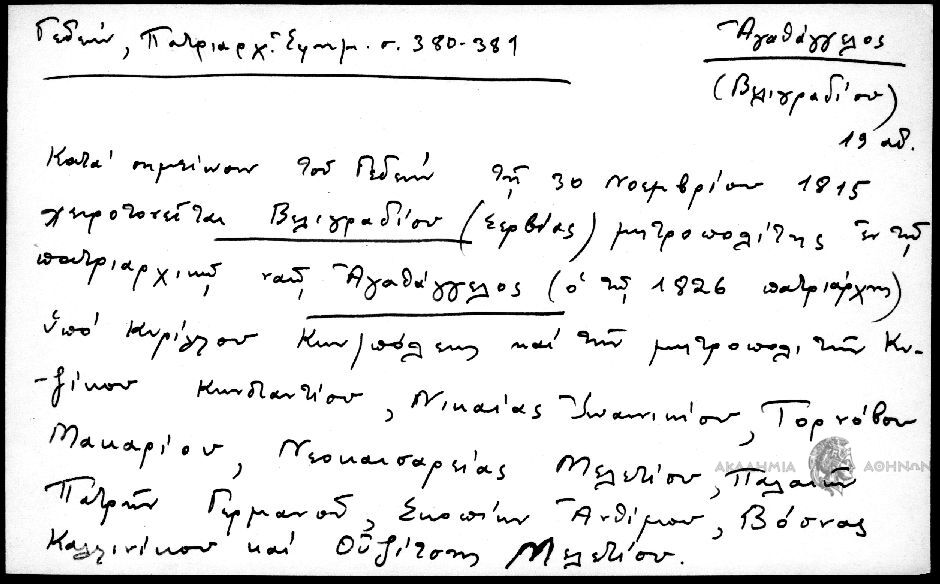 Γεδεών, Πατριαρχ. Ἐφημ. σ. 380-381
Ἀγαθάγγελος
(Βελιγραδίου)
19 αἰ.
Κατά σημείωσιν τοῦ Γεδεών τῇ 30 Νοεμβρίου 1815
χειροτονεῖται Βελιγραδίου (Σερβίας) μητροπολίτης ἐν τῷ
πατριαρχικῷ ναῷ Ἀγαθάγγελος (ὁ τῷ 1826 πατριάρχης)
ὑπό Κυρίλλου Κων/πόλεως καί τῶν μητροπολιτῶν Κυ-
-ζίκου Κωνσταντίου, Νικαίας Ἰωαννικίου, Τορνόβου
Μακαρίου, Νεοκαισαρείας Μελετίου, Παλαιῶν
Πατρῶν Γερμανοῦ, Σκοπίων Ἀνθίμου, Βόσνας
Καλλινίκου καί Οὐζίτσης Μελετίου.
ΑΚΑΔΗΜΙΑ ΑΘΗΝΩΝ